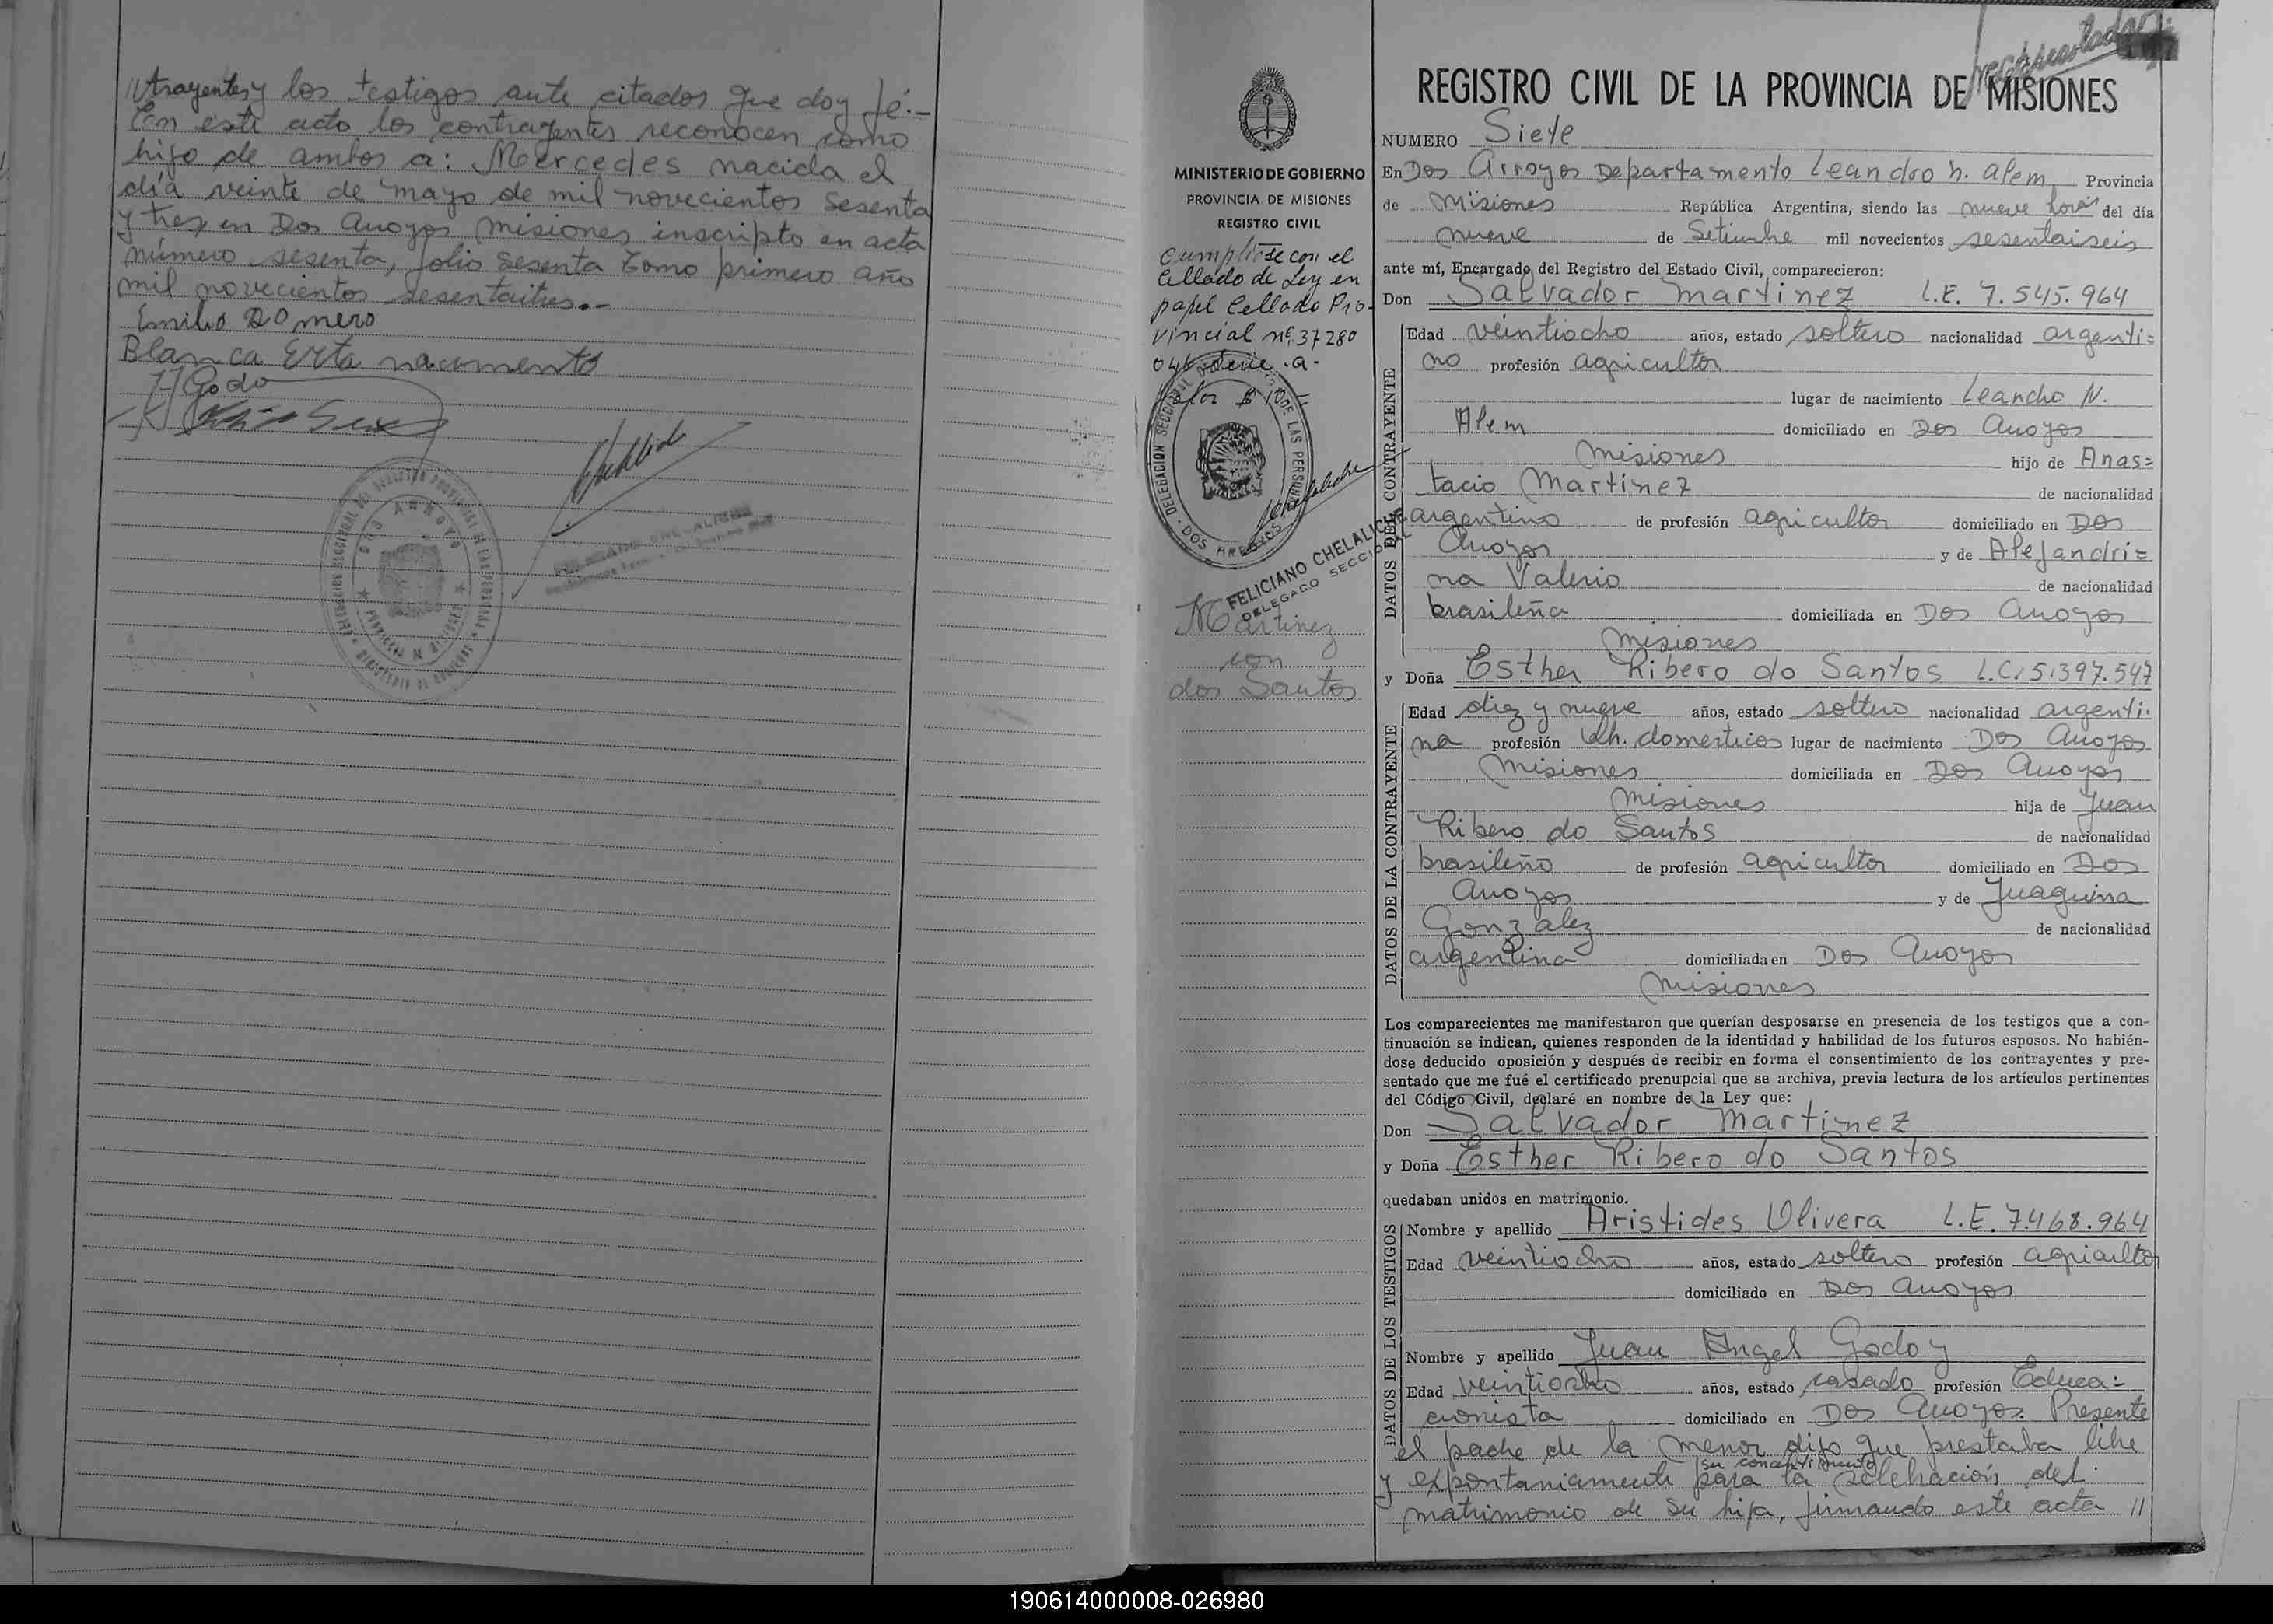 //trayentes y los testigos ante citados que doy fé.-
En este acto los contrayentes reconocen como
hijo de ambos a: Mercedes nacida el
día veinte de mayo de mil novecientos sesenta
y tres en Dos Arroyos Misiones inscripto en acta
número sesenta, folio sesenta tomo primero año
mil novecientos sesentaitres.-
Emilio Romero
Blanca Erta nacimento
Godo
DOS ARROYOS
MINISTERIO DE GOBIERNO
PROVINCIA DE MISIONES
REGISTRO CIVIL
Cumpliose con el
Cellado de Ley en
papel Cellado Pro-
vincial nº 37280
valor $ 10
DELEGACION SECCIONAL DE LAS PERSONAS
DOS ARROYOS
FELICIANO CHELALICHE
DELEGADO SECCIONAL
Martinez
con
dos Santos
REGISTRO CIVIL DE LA PROVINCIA DE MISIONES
NUMERO Siete
En Dos Arroyos Departamento Leandro N. Alem Provincia
de Misiones República Argentina, siendo las nueve horas del día
nueve de Setiembre mil novecientos sesentaiseis
ante mí, Encargado del Registro del Estado Civil, comparecieron:
Don Salvador Martinez L.E. 7.545.964
DATOS DEL CONTRAYENTE
Edad veintiocho años, estado soltero nacionalidad argenti=
no profesión agricultor
lugar de nacimiento Leandro N.
Alem domiciliado en Dos Arroyos
Misiones hijo de Anas=
tacio Martinez de nacionalidad
argentino de profesión agricultor domiciliado en Dos
Arroyos y de Alejandri=
na Valerio de nacionalidad
brasileña domiciliada en Dos Arroyos
Misiones
y Doña Esther Ribero do Santos L.C. 5.397.547
DATOS DE LA CONTRAYENTE
Edad diez y nueve años, estado soltero nacionalidad argenti-
na profesión Qh. domesticos lugar de nacimiento Dos Arroyos
Misiones domiciliada en Dos Arroyos
Misiones hija de Juan
Ribero do Santos de nacionalidad
brasileño de profesión agricultor domiciliado en Dos
Arroyos y de Juaquina
Gonzalez de nacionalidad
argentina domiciliada en Dos Arroyos
Misiones
Los comparecientes me manifestaron que querían desposarse en presencia de los testigos que a con-
tinuación se indican, quienes responden de la identidad y habilidad de los futuros esposos. No habién-
dose deducido oposición y después de recibir en forma el consentimiento de los contrayentes y pre-
sentado que me fué el certificado prenupcial que se archiva, previa lectura de los artículos pertinentes
del Código Civil, declaré en nombre de la Ley que:
Don Salvador Martinez
y Doña Esther Ribero do Santos
quedaban unidos en matrimonio.
DATOS DE LOS TESTIGOS
Nombre y apellido Aristides Olivera L.E. 7.468.964
Edad veintiocho años, estado soltero profesión agricultor
domiciliado en Dos Arroyos
Nombre y apellido Juan Angel Godoy
Edad veintiocho años, estado casado profesión Educa=
cionista domiciliado en Dos Arroyos. Presente
el padre de la menor dijo que prestaba libre
y expontaniamente su concentimiento para la selebración del
matrimonio de su hija, firmando este acta //
190614000008-026980